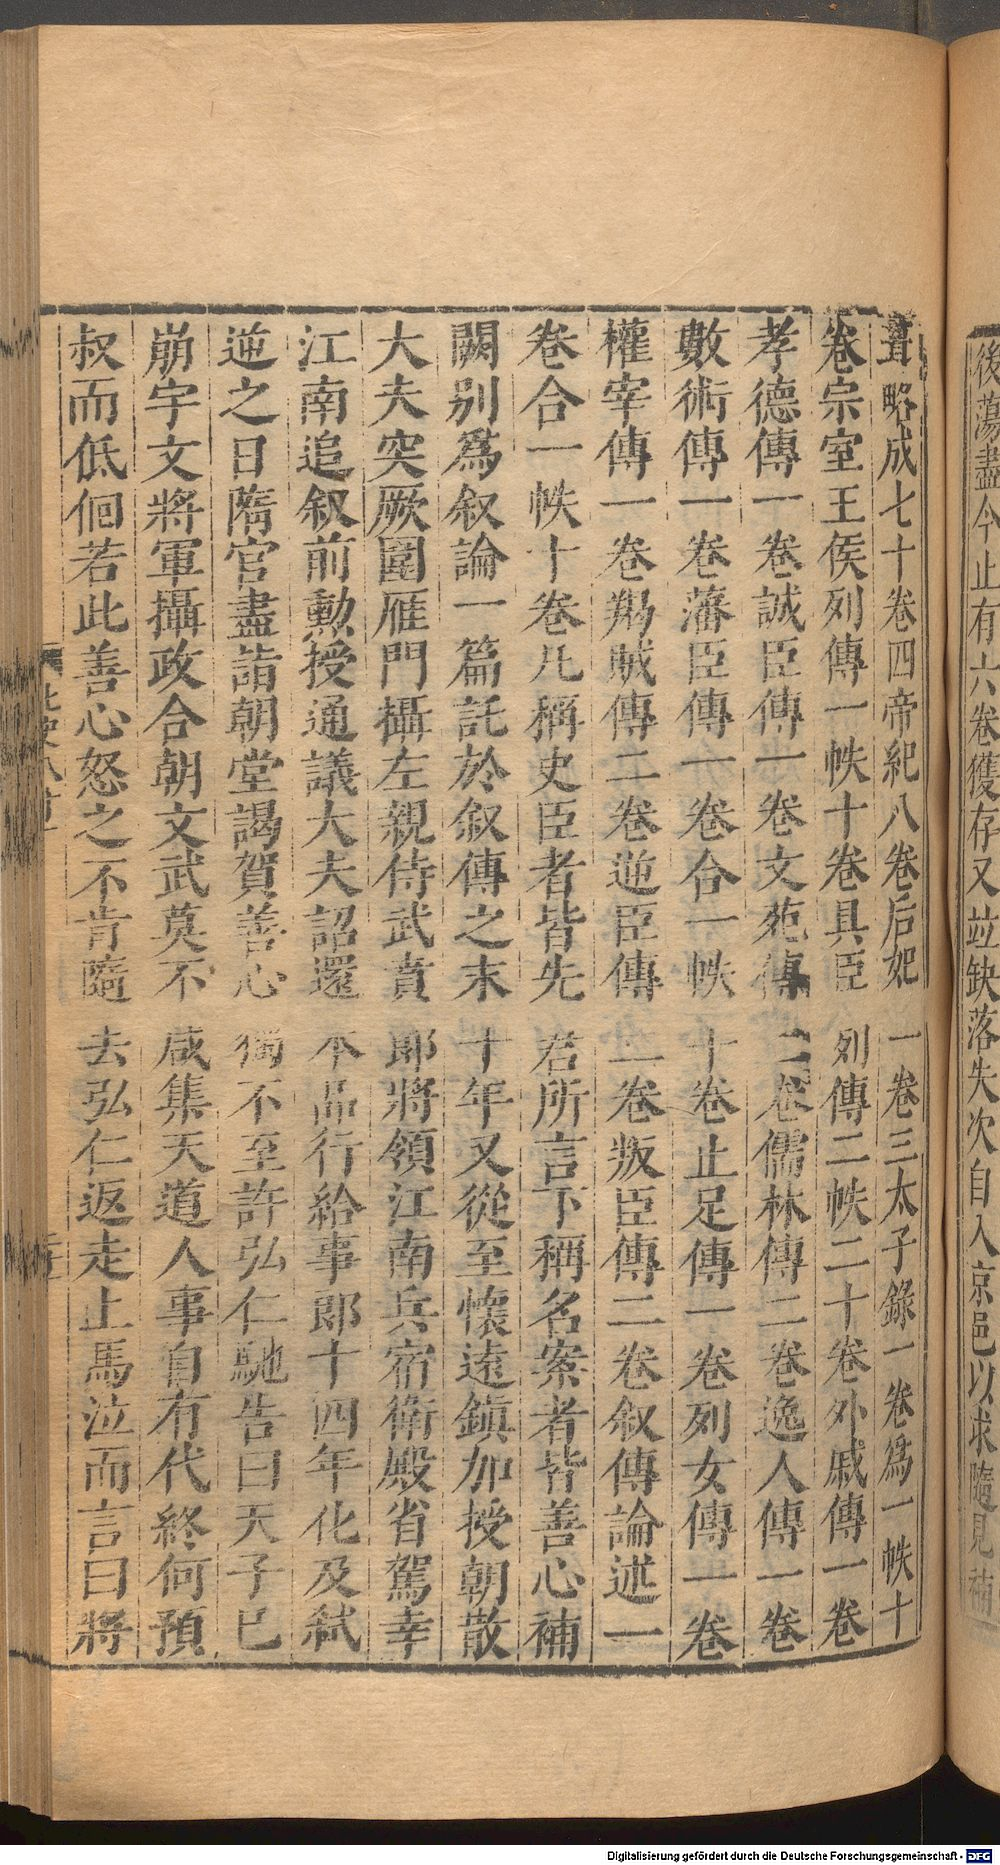 後蕩盡今止有六卷獲存又並缺落失次自入京邑以求隨見補
葺略成七十卷四帝紀八卷后妃一卷三太子錄一卷爲一帙十
卷宗室王侯列傳一帙十卷具臣列傳二帙二十卷外戚傳一卷
孝德傳一卷誠臣傳一卷文苑傳二卷儒林傳二卷逸人傳一卷
數術傳一卷藩臣傳一卷合一帙十卷止足傳一卷列女傳一卷
權宰傳一卷羯賊傳二卷逆臣傳二卷叛臣傳二卷叙傳論述一
卷合一帙十卷凡稱史臣者皆先君所言下稱名案者皆善心補
闕别爲叙論一篇託於叙傳之末十年又從至懷遠鎮加授朝散
大夫突厥圍雁門攝左親侍武賁郎將領江南兵宿衛殿省駕幸
江南追叙前勲授通議大夫詔還本品行給事郎十四年化及弑
逆之日隋官盡詣朝堂謁賀善心獨不至許弘仁馳告曰天子已
崩宇文將軍攝政合朝文武莫不咸集天道人事自有代終何預
叔而低佪若此善心怒之不肯隨去弘仁返走上馬泣而言曰將
Digitalisierung gefördert durch die Deutsche Forschungsgemeinschaft - DFG